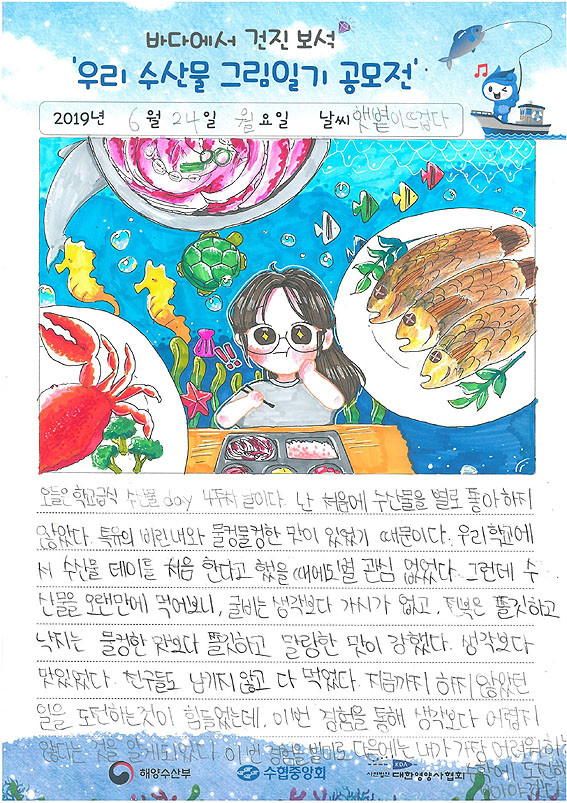 바다에서 건진 보석
'우리 수산물 그림일기 공모전'
2019년 6월 24일 월요일 날씨 햇볕이 뜨겁다
!!
오늘은 학교급식 수산물 day 4주차 날이다. 난 처음에 수산물을 별로 좋아하지
않았다. 특유의 비린내와 물컹물컹한 맛이 있었기 때문이다. 우리학교에
서 수산물 데이를 처음 한다고 했을 때에도 별 관심 없었다. 그런데 수
산물을 오랜만에 먹어보니, 굴비는 생각보다 가시가 없고, 전복은 쫄깃하고
낙지는 물컹한 맛보다 쫄깃하고 말랑한 맛이 강했다. 생각보다
맛있었다. 친구들도 남기지 않고 다 먹었다. 지금까지 하지 않았던
일을 도전하는것이 힘들었는데, 이번 경험을 통해 생각보다 어렵지
않다는 것을 알게되었다. 이번 경험을 발미로 다음에는 내가 가장 어려워하는
도전하
해양수산부 수협중앙회 사단법인 KDA 대한영양사협회